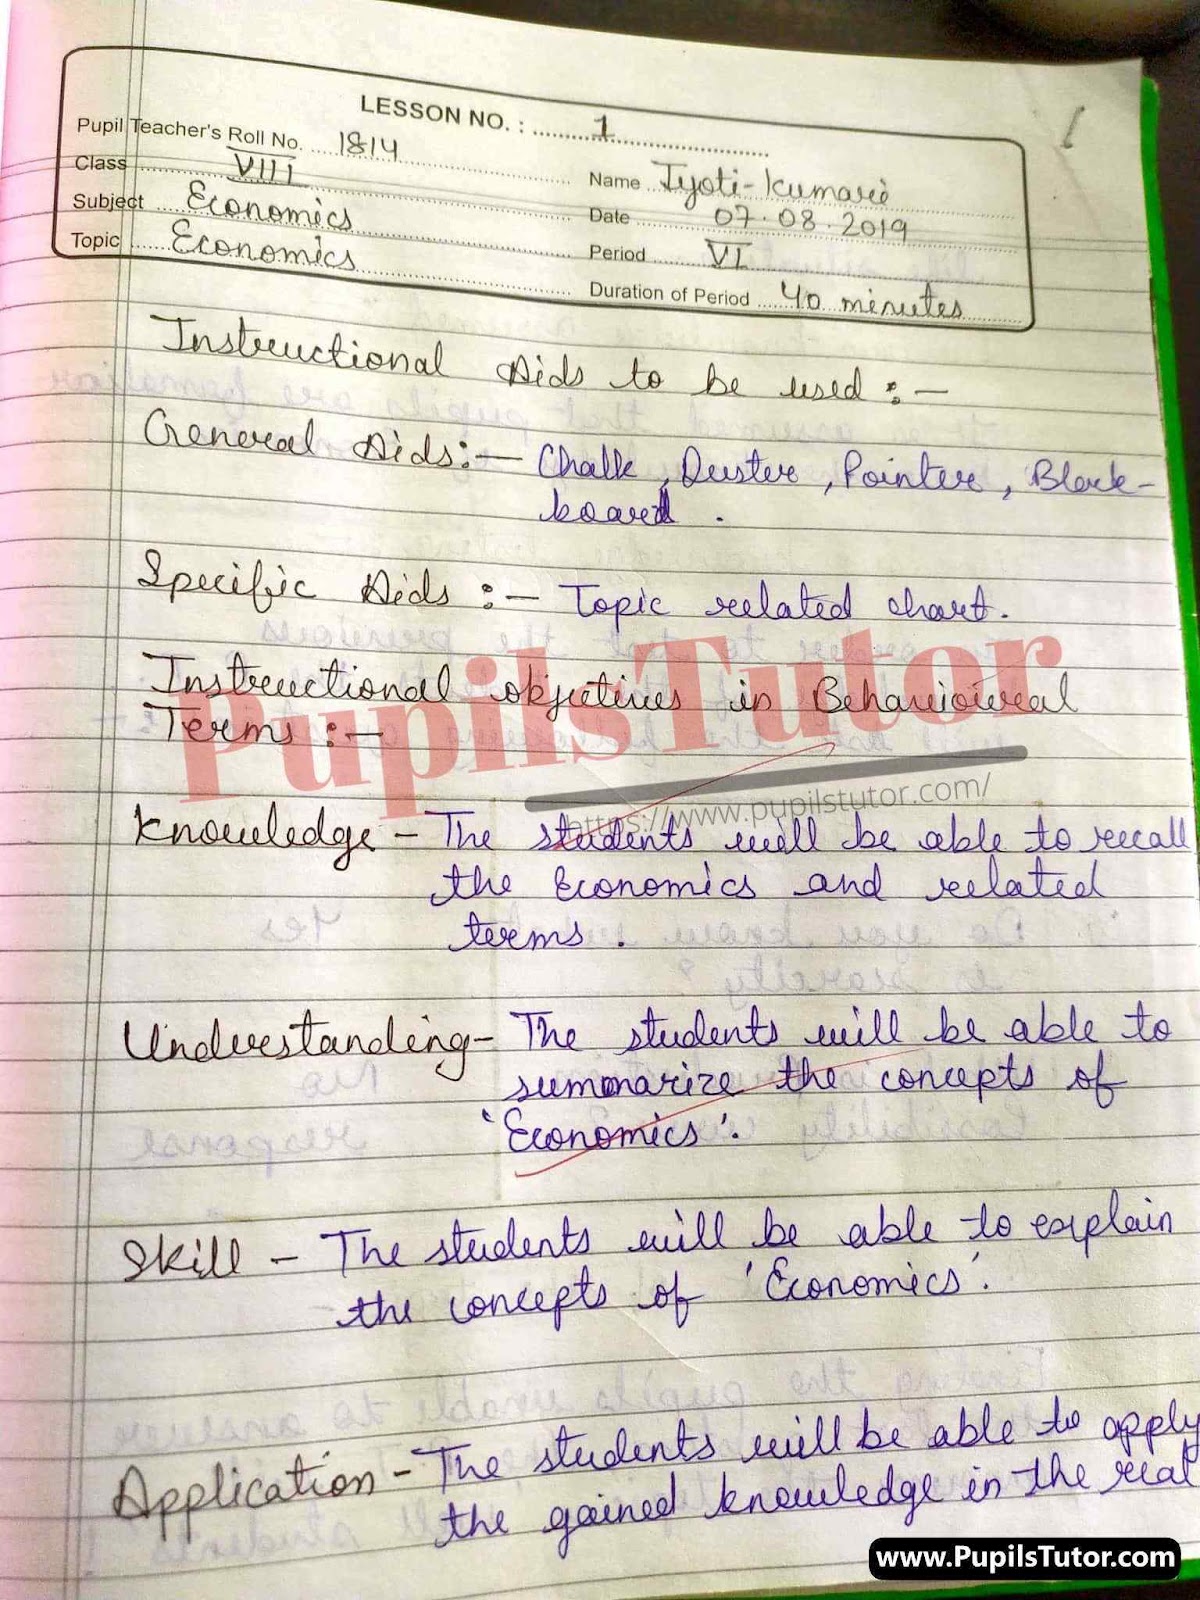 LESSON NO. : 1
Pupil Teacher's Roll No. 1814
Name Jyoti-Kumari
Class VIII
Date 07.08.2019
Subject Economics
Period VI
Topic Economics
Duration of Period 40 minutes
Instructional Aids to be used :-
General Aids :- Chalk, Duster, Pointer, Black-
board .
Specific Aids :- Topic related chart.
Instructional objectives in Behavioural
Terms :-
PupilsTutor
https://www.pupilstutor.com/
Knowledge - The students will be able to recall
the Economics and related
terms .
Understanding - The students will be able to
summarize the concepts of
'Economics'.
Skill - The students will be able to explain
the concepts of 'Economics'.
Application - The students will be able to apply
the gained knowledge in the real
www.PupilsTutor.com